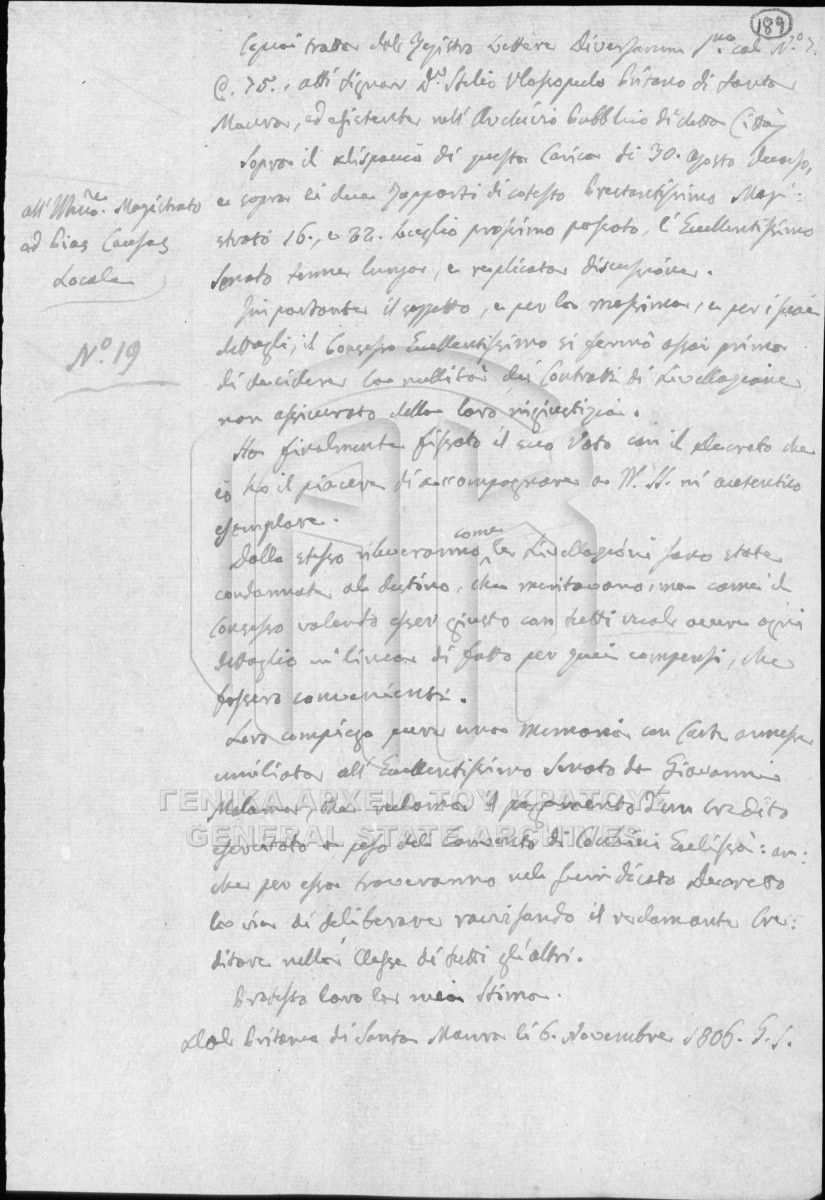 189
Copia tratta dal Registro Lettere Diversarum
C. 75., atti Signor Stelio Vlassopulo Pritano di Santa
Maura, ed esistente nell' Archivio Pubblico di detta Città
Sopra il dispaccio di questa Carica di 30. Agosto decorso,
e sopra li due rapporti di cotesto Prestantissimo Magi:
strato 16., e 22. Luglio prossimo passato, l'Eccellentissimo
Senato tenne lunga, e replicata discussione.
all' Magistrato
ad Pias Causas
Locale
Nº 19
Importante il soggetto, e per la massima, e per i suoi
dettagli, il Consesso Eccellentissimo si fermò assai prima
di decidere la nullità dei Contratti di Livellazione
non assicurato della loro ingiustizia.
Ha finalmente fissato il suo Voto con il Decreto che
io ho il piacere di accompagnare a V. SS. in autentico
esemplare.
Dallo stesso rileveranno come le Livellazioni sono state
condannate al destino, che meritavano, ma come il
Consesso volendo esser giusto con tutti vuole avere ogni
dettaglio in linea di fatto per quei compensi, che
fossero convenienti.
Loro compiego pure una memoria con Carte annesse
umiliata all' Eccellentissimo Senato da Giovanni
che reclama il pagamento d'un Credito
a peso del Convento di
che per essa troveranno nel Decreto
la via di deliberare ravvisando il reclamante Cre:
ditore nella Classe di tutti gl'altri.
Protesto loro la mia Stima.
Dal Pritano di Santa Maura li 6. Novembre 1806. S. S.
ΓΕΝΙΚΑ ΑΡΧΕΙΑ ΤΟΥ ΚΡΑΤΟΥΣ
GENERAL STATE ARCHIVES